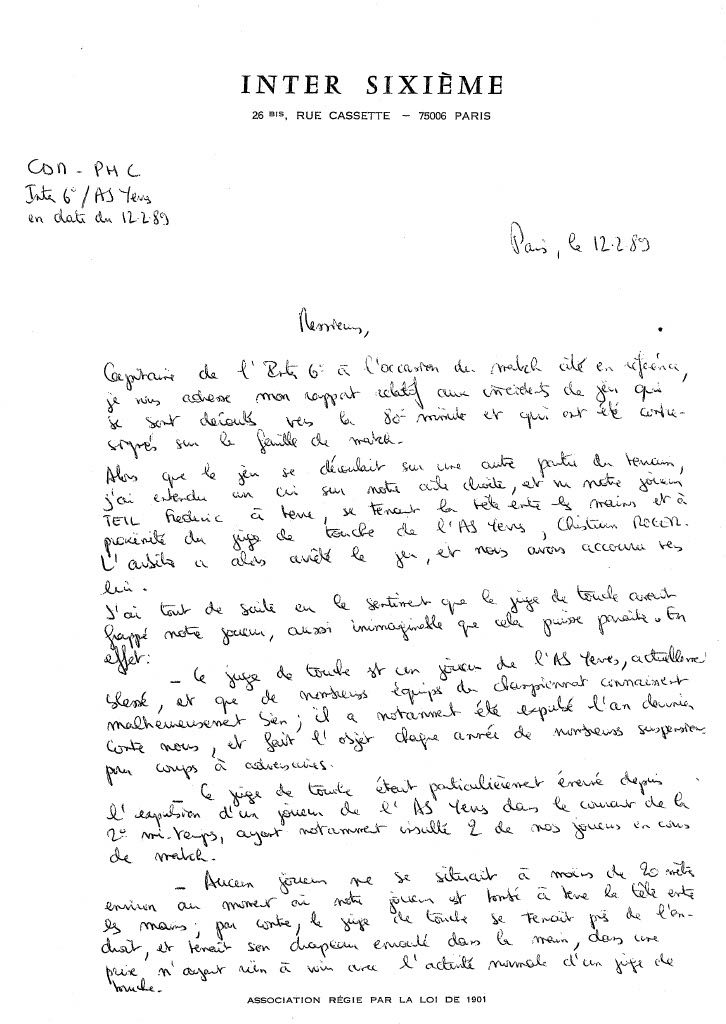 INTER SIXIÈME
26 BIS, RUE CASSETTE – 75006 PARIS
CDM - PHC
Inter 6° / AS Yerres
en date du 12.2.89
Paris, le 12.2.89
Messieurs,
Capitaine de l'Inter 6° à l'occasion du match cité en référence,
je vous adresse mon rapport relatif aux incidents de jeu qui
se sont déroulés vers la 80° minute et qui ont été contre-
signés sur la feuille de match.
Alors que le jeu se déroulait sur une autre partie du terrain,
j'ai entendu un cri sur notre aile droite, et vu notre joueur
TEIL Frédéric à terre, se tenant la tête entre les mains et à
proximité du juge de touche de l'AS Yerres, Christian ROGER.
L'arbitre a alors arrêté le jeu, et nous avons accouru vers
lui.
J'ai tout de suite eu le sentiment que le juge de touche avait
frappé notre joueur, aussi inimaginable que cela puisse paraître. En
effet:
– Ce juge de touche est un joueur de l'AS Yerres, actuellement
blessé, et que de nombreuses équipes du championnat connaissent
malheureusement bien ; il a notamment été expulsé l'an dernier
contre nous, et fait l'objet chaque année de nombreuses suspensions
pour coups à adversaires.
– Ce juge de touche était particulièrement énervé depuis
l'expulsion d'un joueur de l'AS Yerres dans le courant de la
2° mi-temps, ayant notamment insulté 2 de nos joueurs en cours
de match.
– Aucun joueur ne se situait à moins de 20 mètres
environ au moment où notre joueur est tombé à terre la tête entre
les mains ; par contre, le juge de touche se tenait près de l'en-
droit, et tenait son drapeau enroulé dans la main, dans une
prise n'ayant rien à voir avec l'activité normale d'un juge de
touche.
ASSOCIATION RÉGIE PAR LA LOI DE 1901